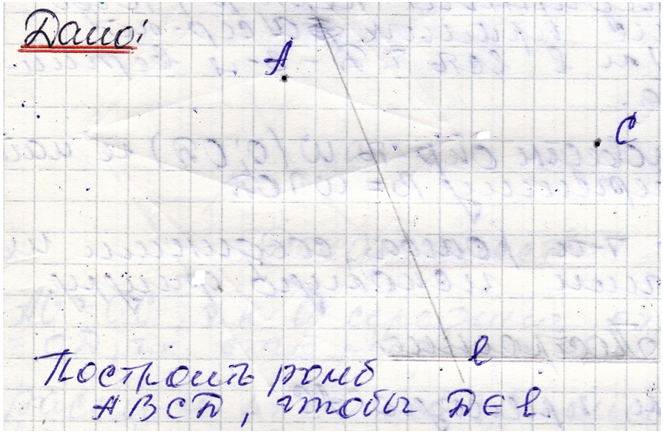 Дано:
A
C
l
Построить ромб
ABCD, чтобы D∈l.